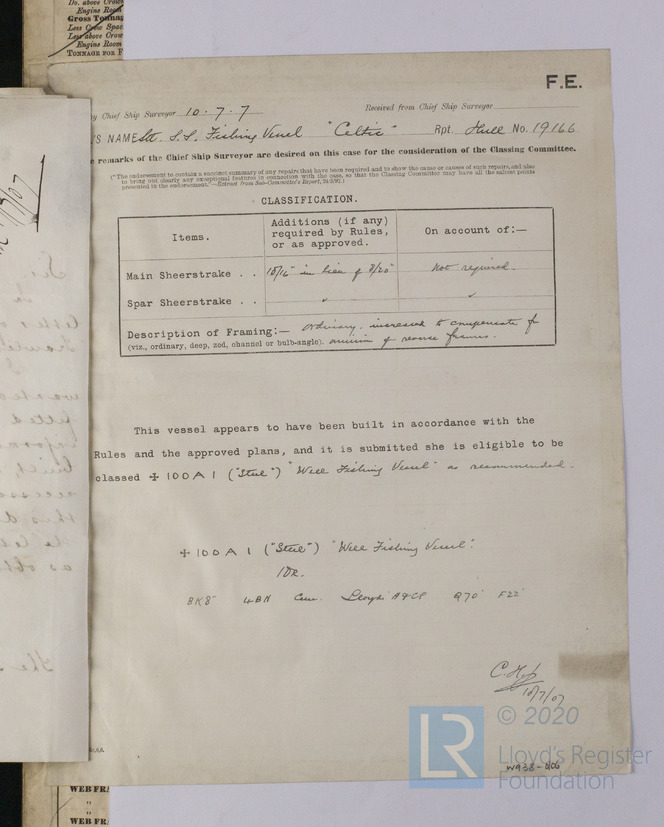 Do. above Crown
Engine Room
Gross Tonnag
Less Crew Spac
Less above Crow
Engine Room
Tonnage for F
F.E.
by Chief Ship Surveyor 10.7.7
Received from Chief Ship Surveyor
'S NAME Stl. S.S. Fishing Vessel "Celtic" Rpt. Hull No. 19166
e remarks of the Chief Ship Surveyor are desired on this case for the consideration of the Classing Committee.
("The endorsement to contain a succinct summary of any repairs that have been required and to show the cause or causes of such repairs, and also
to bring out clearly any exceptional features in connection with the case, so that the Classing Committee may have all the salient points
presented in the endorsement."—Extract from Sub-Committee's Report,
CLASSIFICATION.
Items.
Additions (if any)
required by Rules,
or as approved.
On account of:—
Main Sheerstrake . . 10/16" in lieu of 8/20" Not required.
Spar Sheerstrake . .
Description of Framing:— ordinary, increased to compensate for
(viz., ordinary, deep, zed, channel or bulb-angle). omission of reverse frames.
This vessel appears to have been built in accordance with the
Rules and the approved plans, and it is submitted she is eligible to be
classed ✠ 100 A 1 ("Steel") "Well Fishing Vessel" as recommended.
✠ 100 A 1 ("Steel") "Well Fishing Vessel".
1DK.
BK8" 4BH Cem. Lloyd's A&CP Q70' F22'
10/7/07
W938-0106
LR
© 2020
Lloyd's Register
Foundation
WEB FRA
"
"
WEB FRA